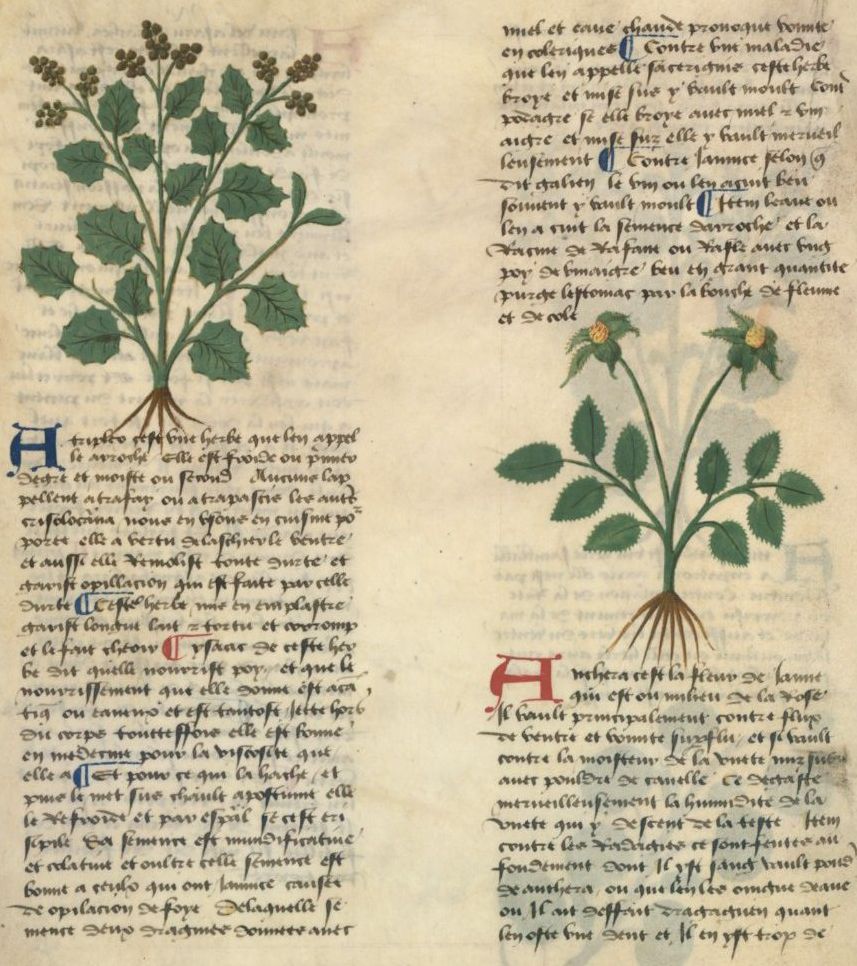 Atriplex cest une herbe que len appel
le arroche Elle est froide ou premier
degre et moiste ou second Aucuns lap
pellent atrafax ou atrapascis les autres
crisolocana nous en usons en cuisine
poree elle a vertu de laschier le ventre
et aussi elle Remolist toute durte et
garist opillacion qui est faite par celle
durte ¶ Ceste herbe mise en emplastre
garist longue
et le fait cheoir ¶ ysaac de ceste her
be dit quelle nourrist poy et que le
nourrissement que elle donne est
ou eaueux et est tantost Jette hors
du corps touteffois elle est bonne
en medecine pour la viscosite que
elle a ¶ Et pour ce qui la hache et
puis le met sus chault apostume elle
le Refroide et par espal se cest eri
sipile Sa semence est mundificative
et colative et oultre celle semence est
bonne a ceulx qui ont Jaunice causee
de opilacion de foye De laquelle se
mence deux dragmes donnees avec
miel et eaue chaude provoque vomite
en coleriques ¶ Contre une maladie
que len appelle ceste herbe
broye et mise sus y vault moult Cont
podagre se elle broye avec miel & vin
aigre et mise sur elle y vault merveil
leusement ¶ Contre Jaunice selon q
dit galien le vin ou len a cuit ben
souvent y vault moult ¶ Item leaue ou
len a cuit la semence darroche et la
Racine de Rafane ou Rafle avec ung
poy de vinaigre beu en grant quantite
purge lestomac par la bouche de fleume
et de cole
Anthera cest la fleur de Jaune
qui est ou milieu de la Rose
Il vault principalement contre flux
de ventre et vomite supflu et si vault
contre la moisteur de la
avec pouldre de canelle Ce degaste
merveilleusement la humidite de la
qui y descent de la teste Item
contre les Radagies ce sont fentes au
fondement dont Il yst sang vault poud
de anthera ou que len les oingne deaue
ou Il ait deffait dragaguen quant
len oste une dent et Il en yst trop de